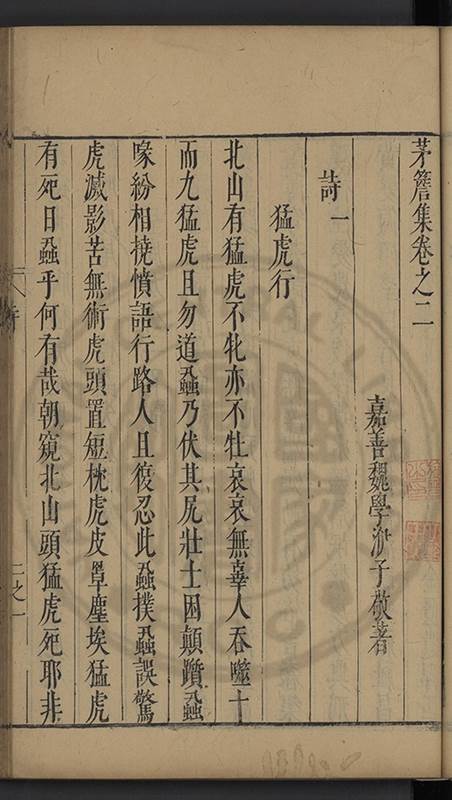 茅簷集卷之二
嘉善魏學洢子敬著
詩一
猛虎行
北山有猛虎不牝亦不牡哀哀無辜人吞噬十
而九猛虎且勿道蝨乃伏其尻壯士困顛躓蝨
喙紛相撓憤語行路人且復忍此蝨撲蝨誤驚
虎滅影苦無術虎頭置短枕虎皮障塵埃猛虎
有死日蝨乎何有哉朝窺北山頭猛虎死耶非
二之一